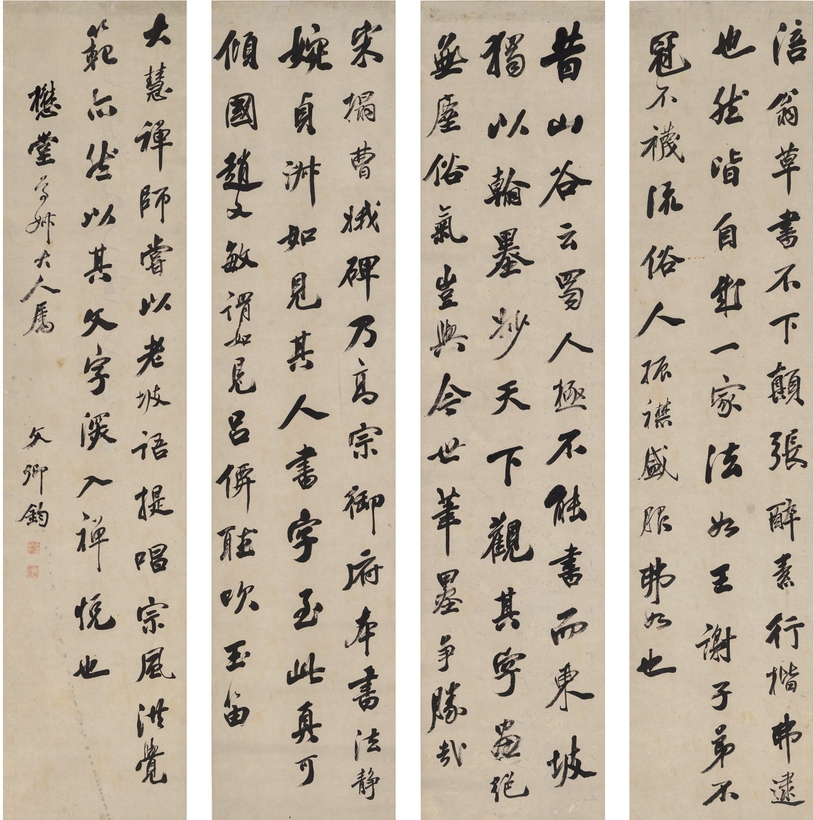 涪翁草書不下顛張醉素行楷弗逮
也然皆自成一家法如王謝子弟不
冠不襪流俗人振襟盛服弗如也
昔山谷云蜀人極不能書而東坡
獨以翰墨妙天下觀其字畫絕
無塵俗氣豈與今世筆墨爭勝哉
宋搨曹娥碑乃高宗御府本書法靜
婉貞淑如見其人書字至此真可
傾國趙文敏謂如見呂僊聽吹玉笛
大慧禪師嘗以老坡語提唱宗風洪覺
範亦然以其文字深入禪悅也
懋堂尊姊大人屬
文卿鈞